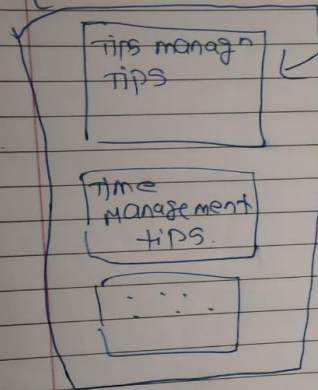 Tips managn
Tips
Time
management
tips.